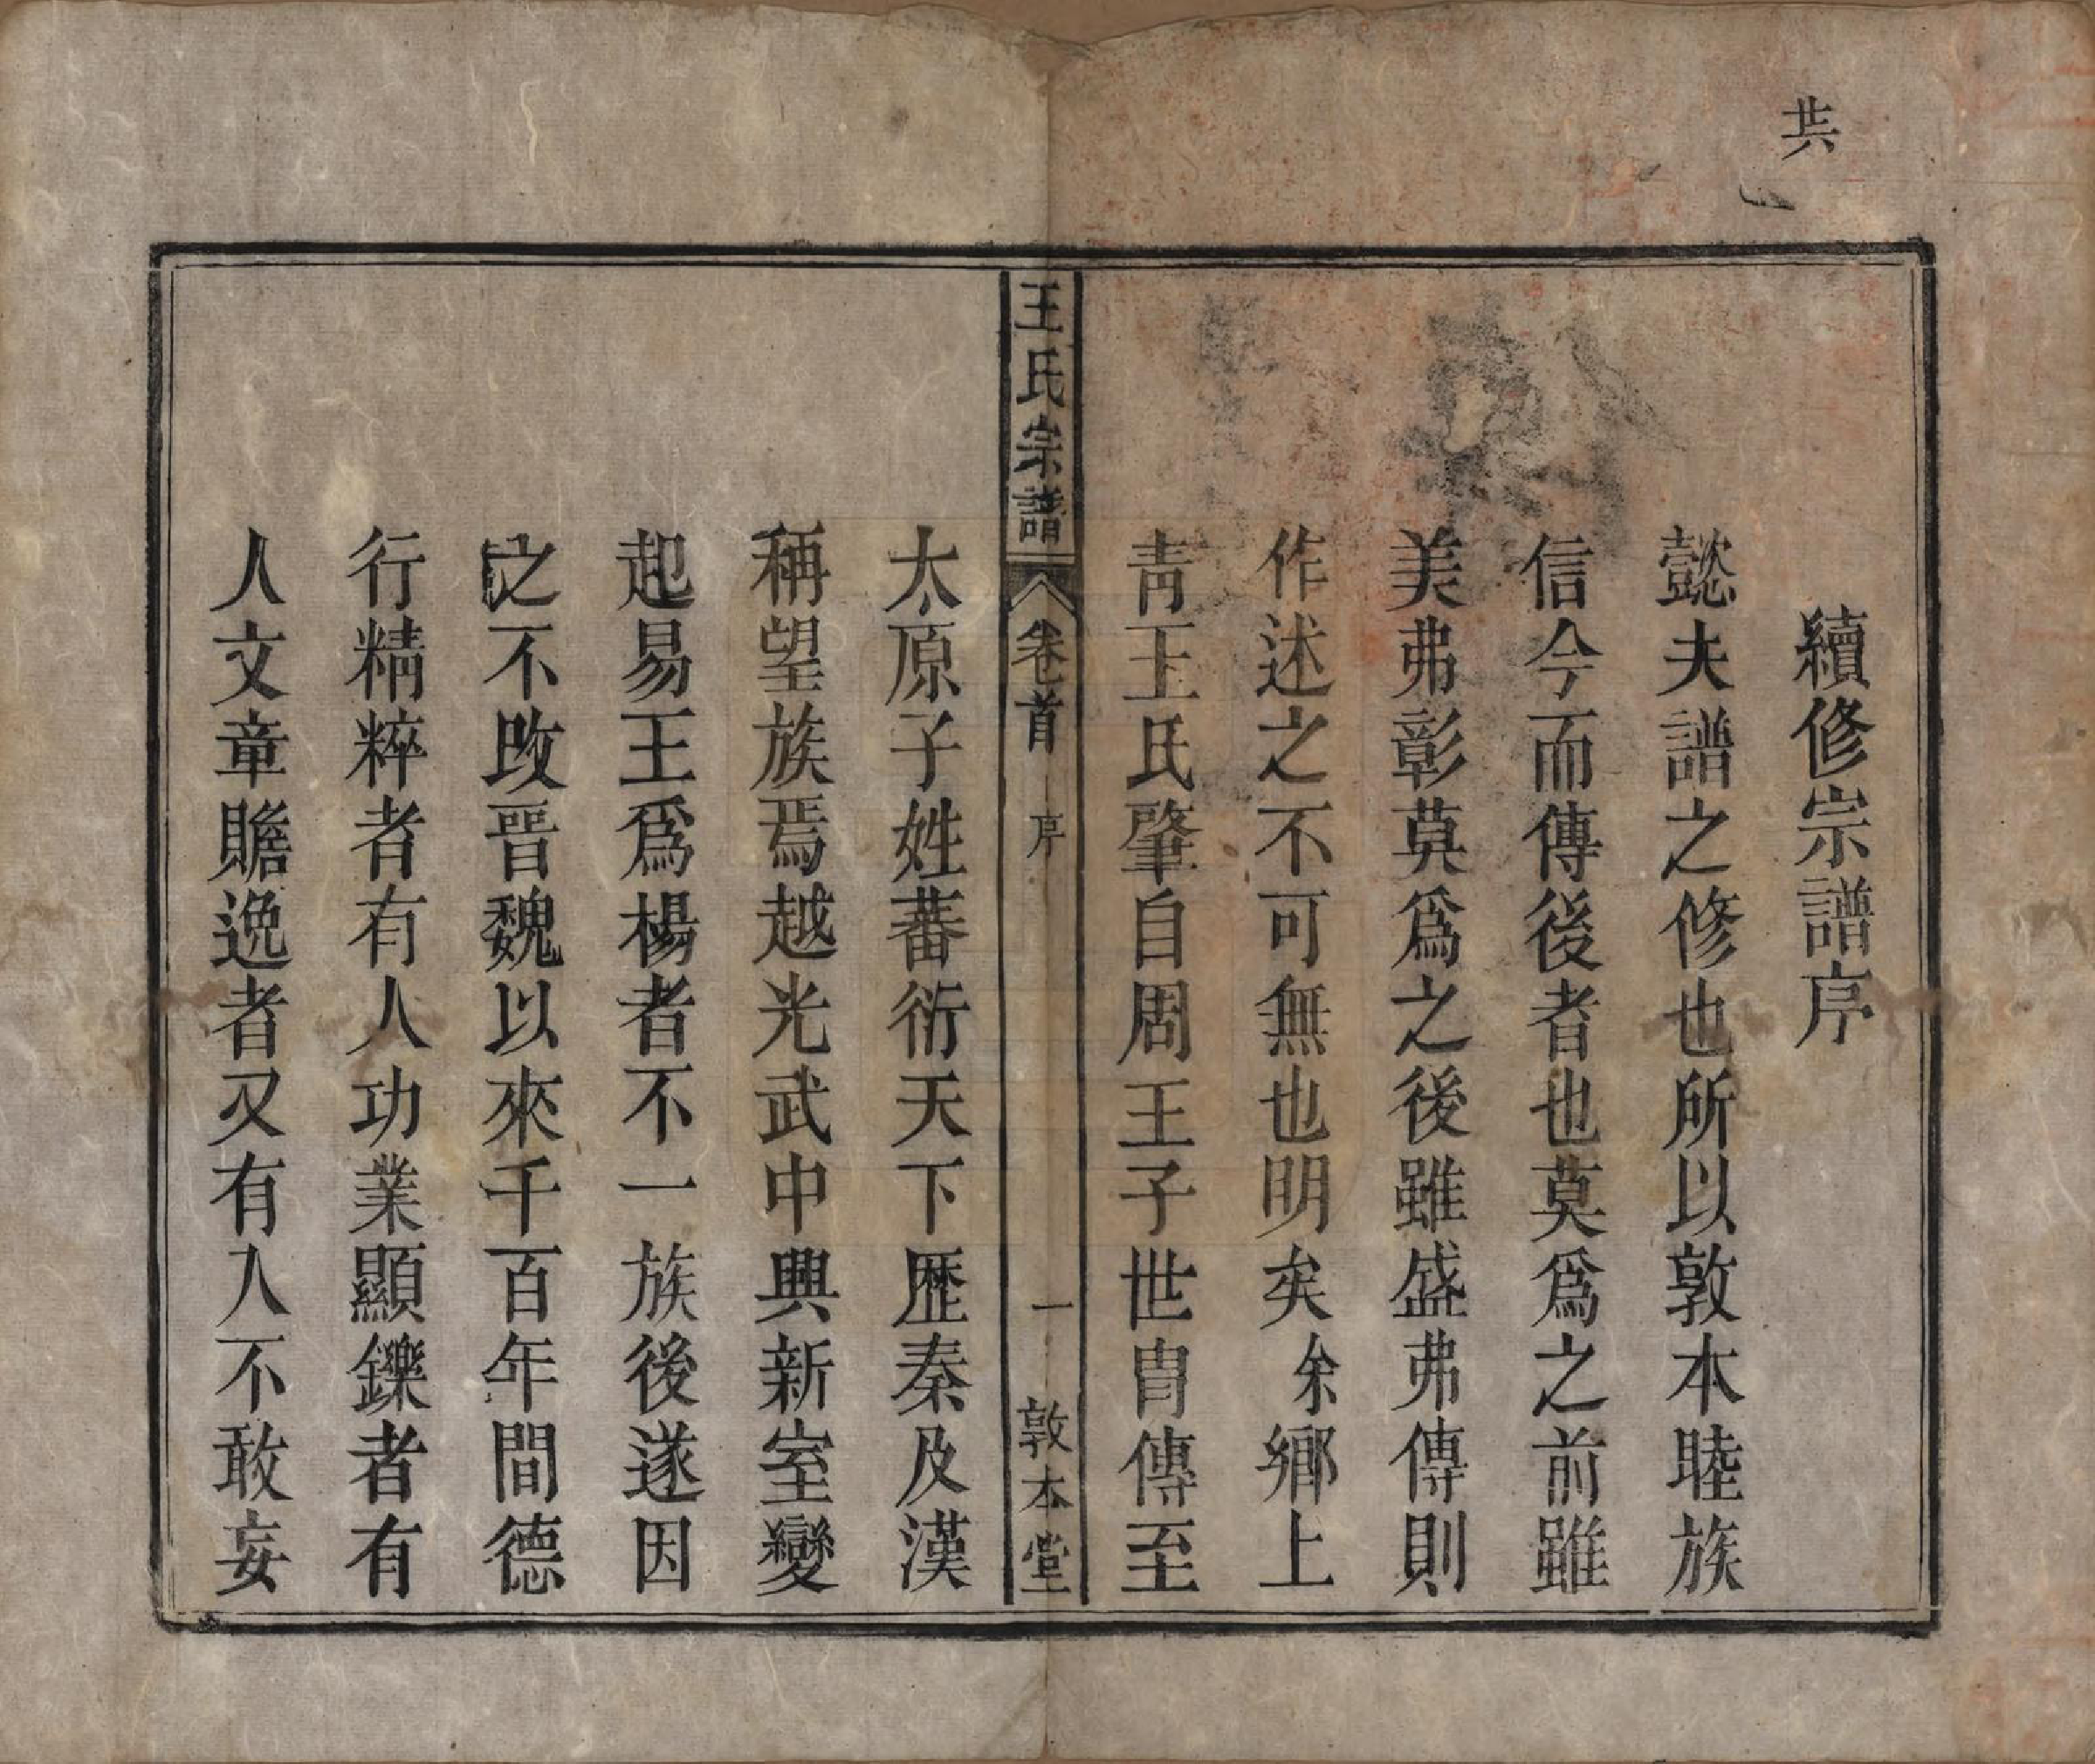 共
續修宗譜序
懿夫譜之修也所以敦本睦族
信今而傳後者也莫爲之前雖
美弗彰莫爲之後雖盛弗傳則
作述之不可無也明矣余鄉上
靑王氏肇自周王子世胄傳至
王氏宗譜 卷首 序 一 敦本堂
太原子姓蕃衍天下歷秦及漢
稱望族焉越光武中興新室變
起易王爲楊者不一族後遂因
之不改晉魏以來千百年間德
行精粹者有人功業顯鑠者有
人文章贍逸者又有人不敢妄